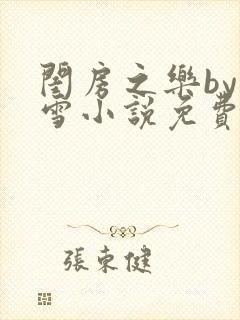 閨房之樂by
雪小說免費
張東健